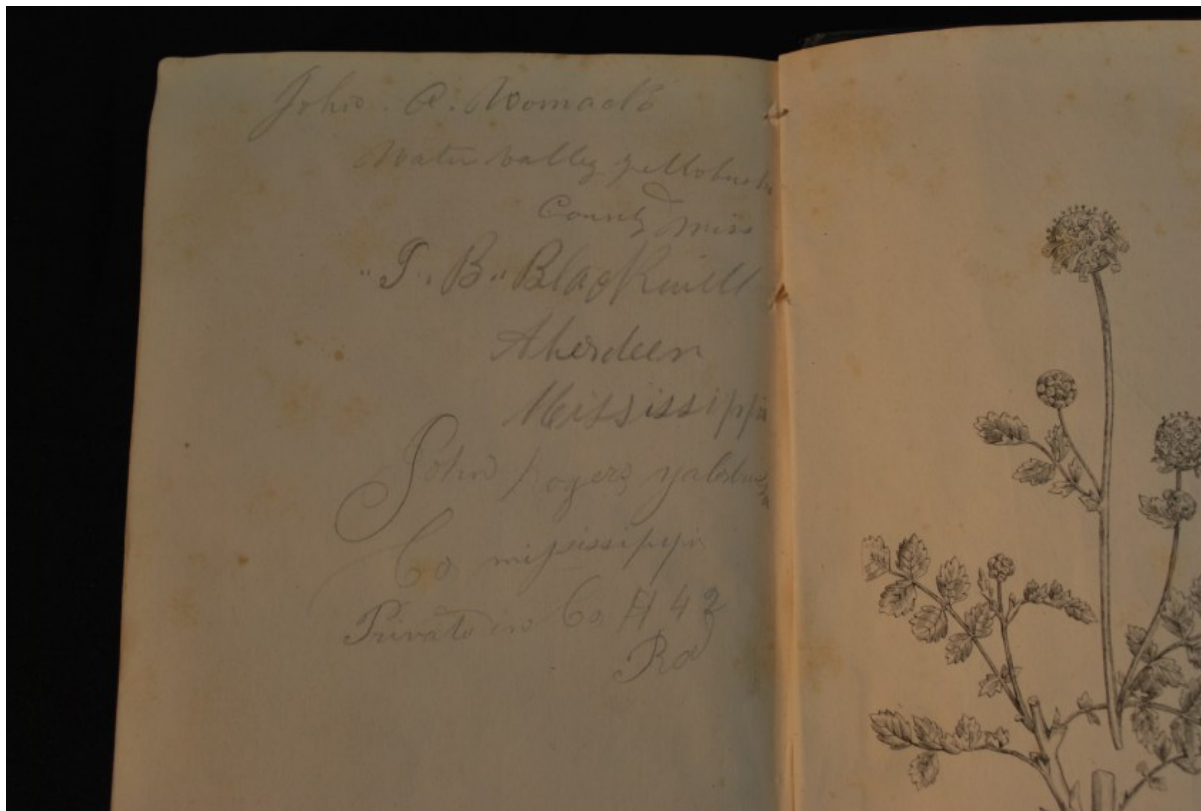 John. A. Womack
Water valley yallobush
County Miss
"T. B." Blackwell
Aberdeen
Mississippi
John Rogers yalobush
Co mississippi
Private in Co H 42